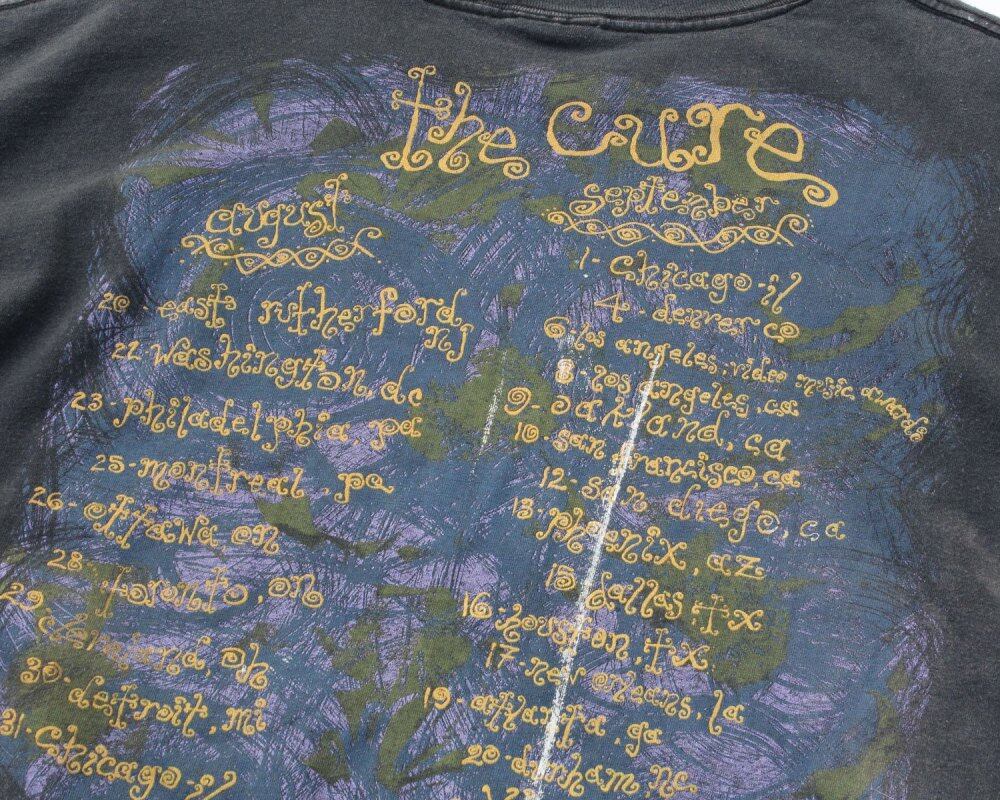 the cure
august
20 east rutherford, nj
22-washington, dc
23 philadelphia pa
25-montreal, pq
26-ottawa, on
28- toronto, on
29- cleveland, oh
30-detroit, mi
31-chicago-il
september
1-chicago-il
4-denver co
6-los angeles, video music awards
8-los angeles, ca
9-oakland, ca
10-san francisco, ca
12-san diego, ca
13-phoenix, az
15 dallas, tx
16-houston, tx.
17-new orleans, la
19-atlanta, ga
20-durham, nc.